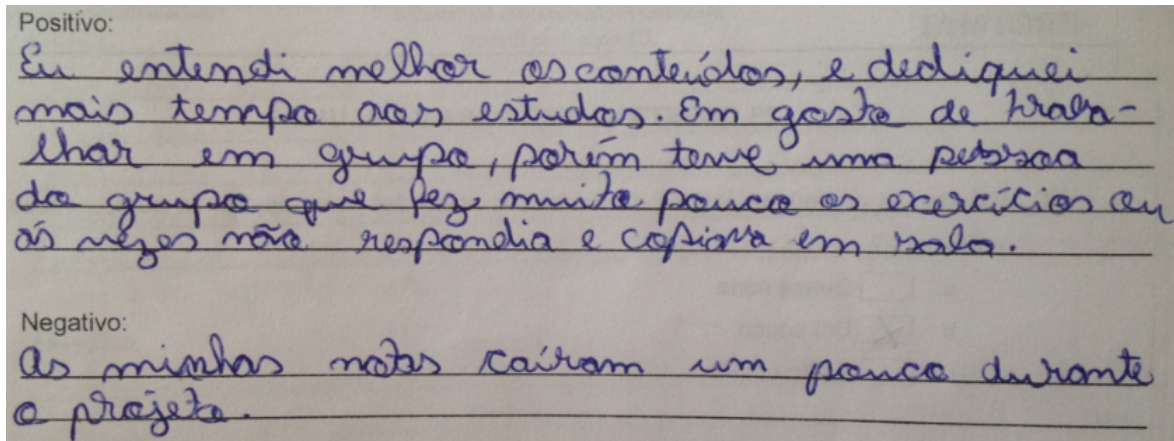 Positivo:
Eu entendi melhor os conteúdos, e dediquei
mais tempo aos estudos. Em gosto de traba-
lhar em grupo, porém teve uma pessoa
do grupo que fez muito pouco os exercícios ou
ás vezes não respondia e copiava em sala.
Negativo:
As minhas notas caíram um pouco durante
o projeto.